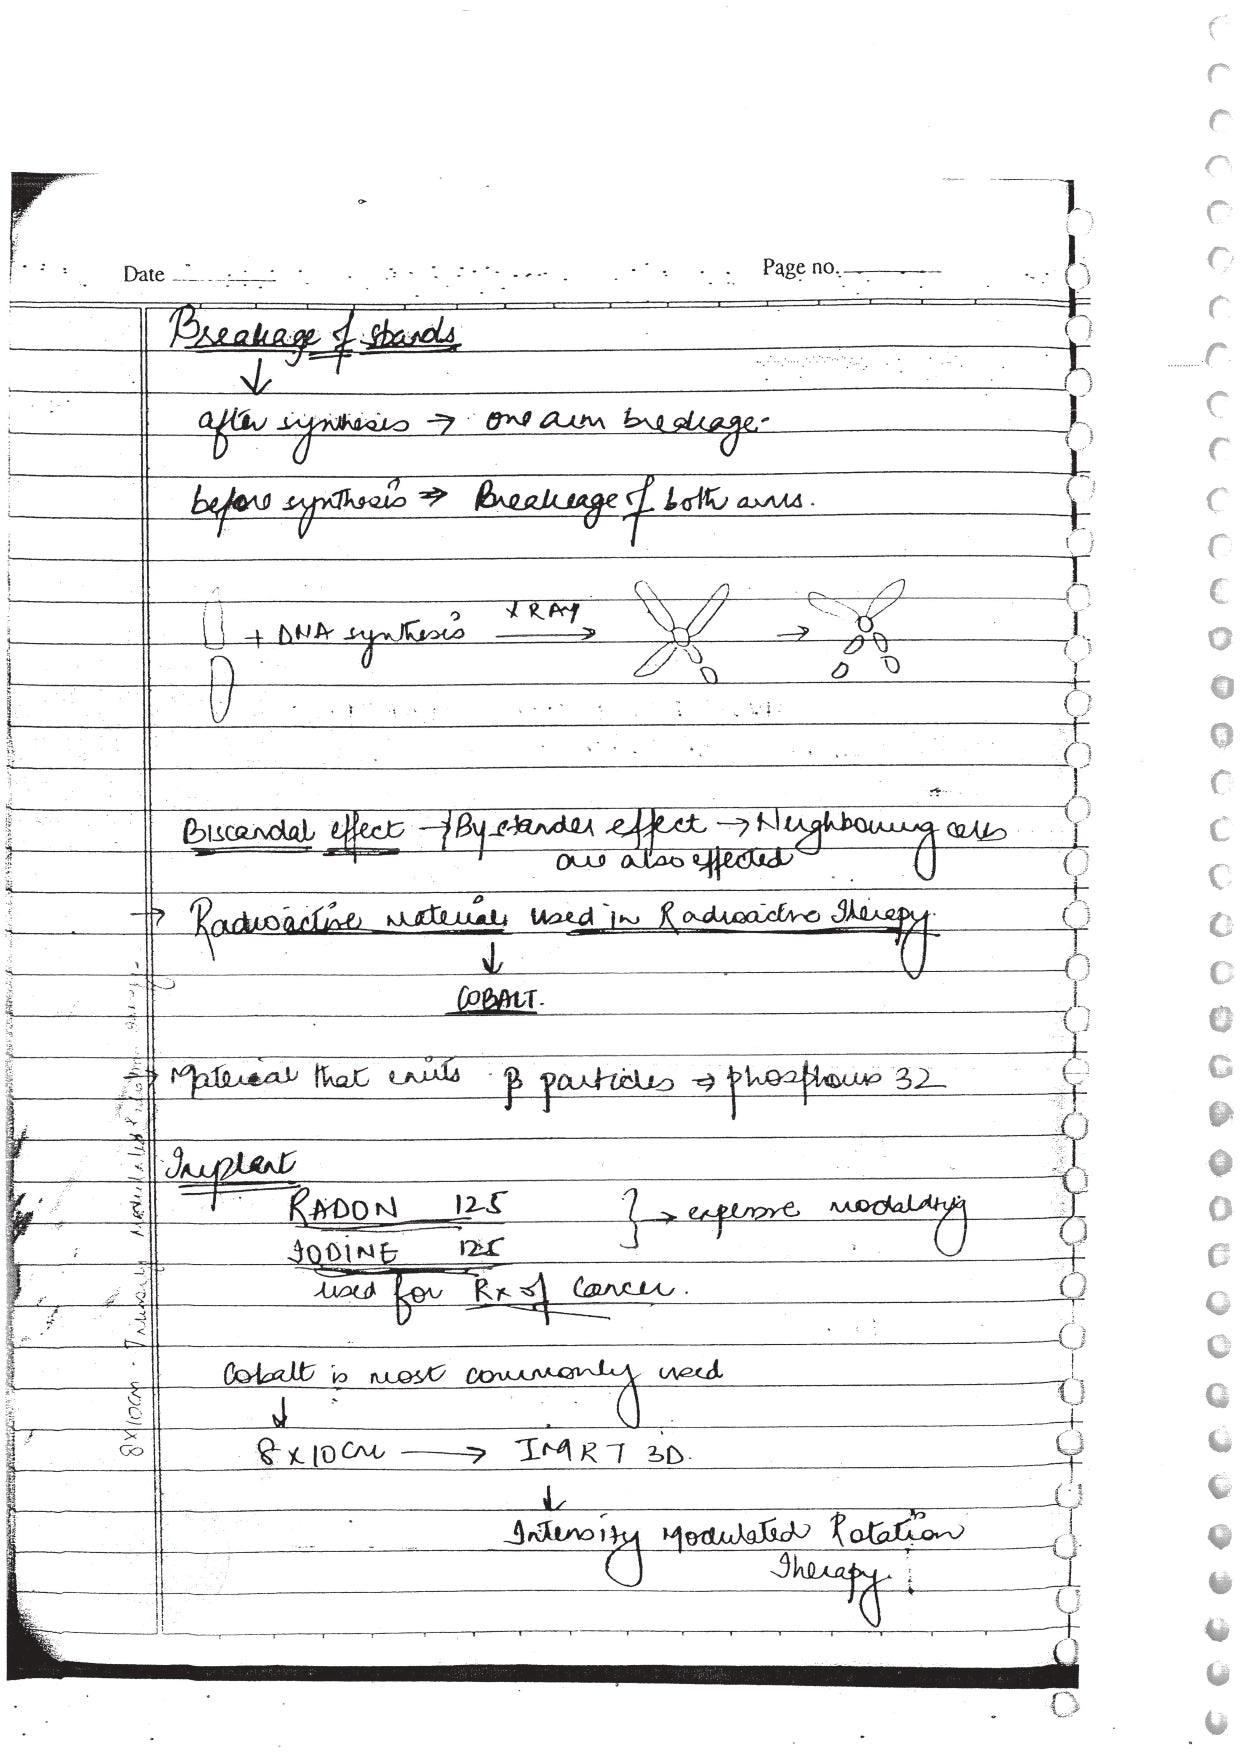 Date
Page no.
Breakage of stands
↓
after synthesis → one arm breakage.
before synthesis ⇒ Breakage of both arms.
+ DNA synthesis X RAY → →
Biscandal effect → Bystander effect → Neighbouring cells
are also effected
→ Radioactive materials used in Radioactive Therapy.
↓
COBALT.
→ Material that emits β particles ⇒ phosphorus 32
Implant
RADON 125 } → expensive modaldrig
IODINE 125
used for Rx of Cancer.
Cobalt is most commonly used
↓
8 x 10 cm → IMRT 3D.
↓
Intensity Modulated Rotation
Therapy.
8 x 10 cm. Intensity Modulated